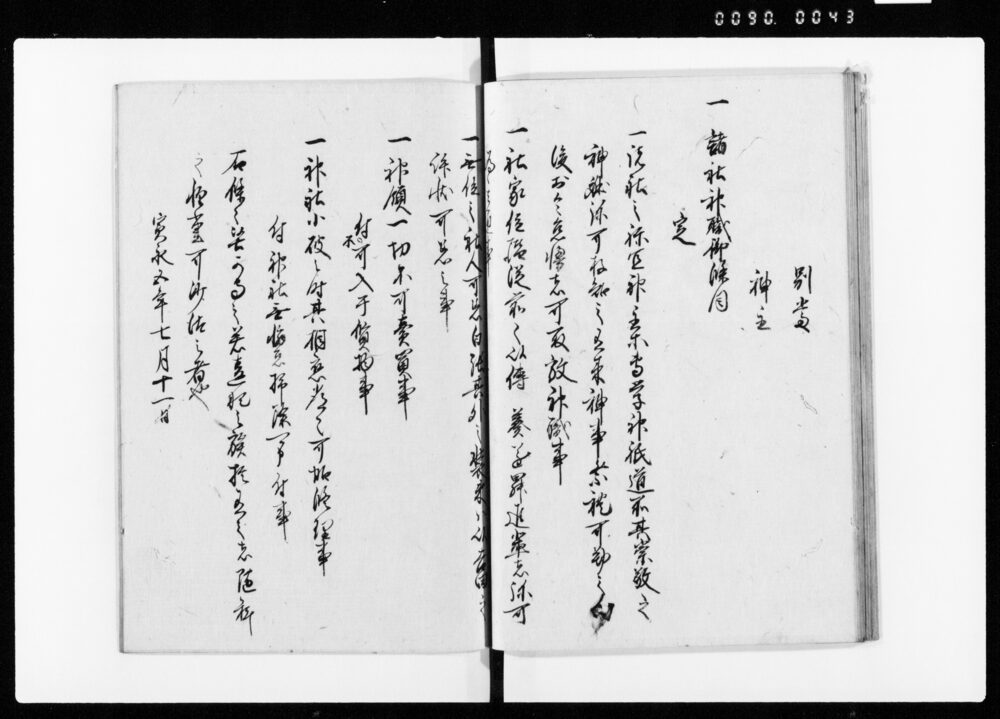 0090. 0043
別當
神主
一 諸社神職御條目
定
一諸社之祢宜神主等専学神祇道所其崇敬之
神躰弥可存知之有来神事祭礼可勤之向
後於令怠慢者可取放神職事
一社家位階従前々以傳 奏遂昇進輩者弥可
為其通事
一無位之社人可着白張其外之装束以吉田之
許状可着之事
一神領一切不可賣買事
付不可入于質物事
一神社小破之時其相應常々可加修理事
付神社無懈怠掃除可申付事
右條々堅可守之若違犯之族於有之者随科
之軽重可沙汰之者也
寛永五年七月十一日